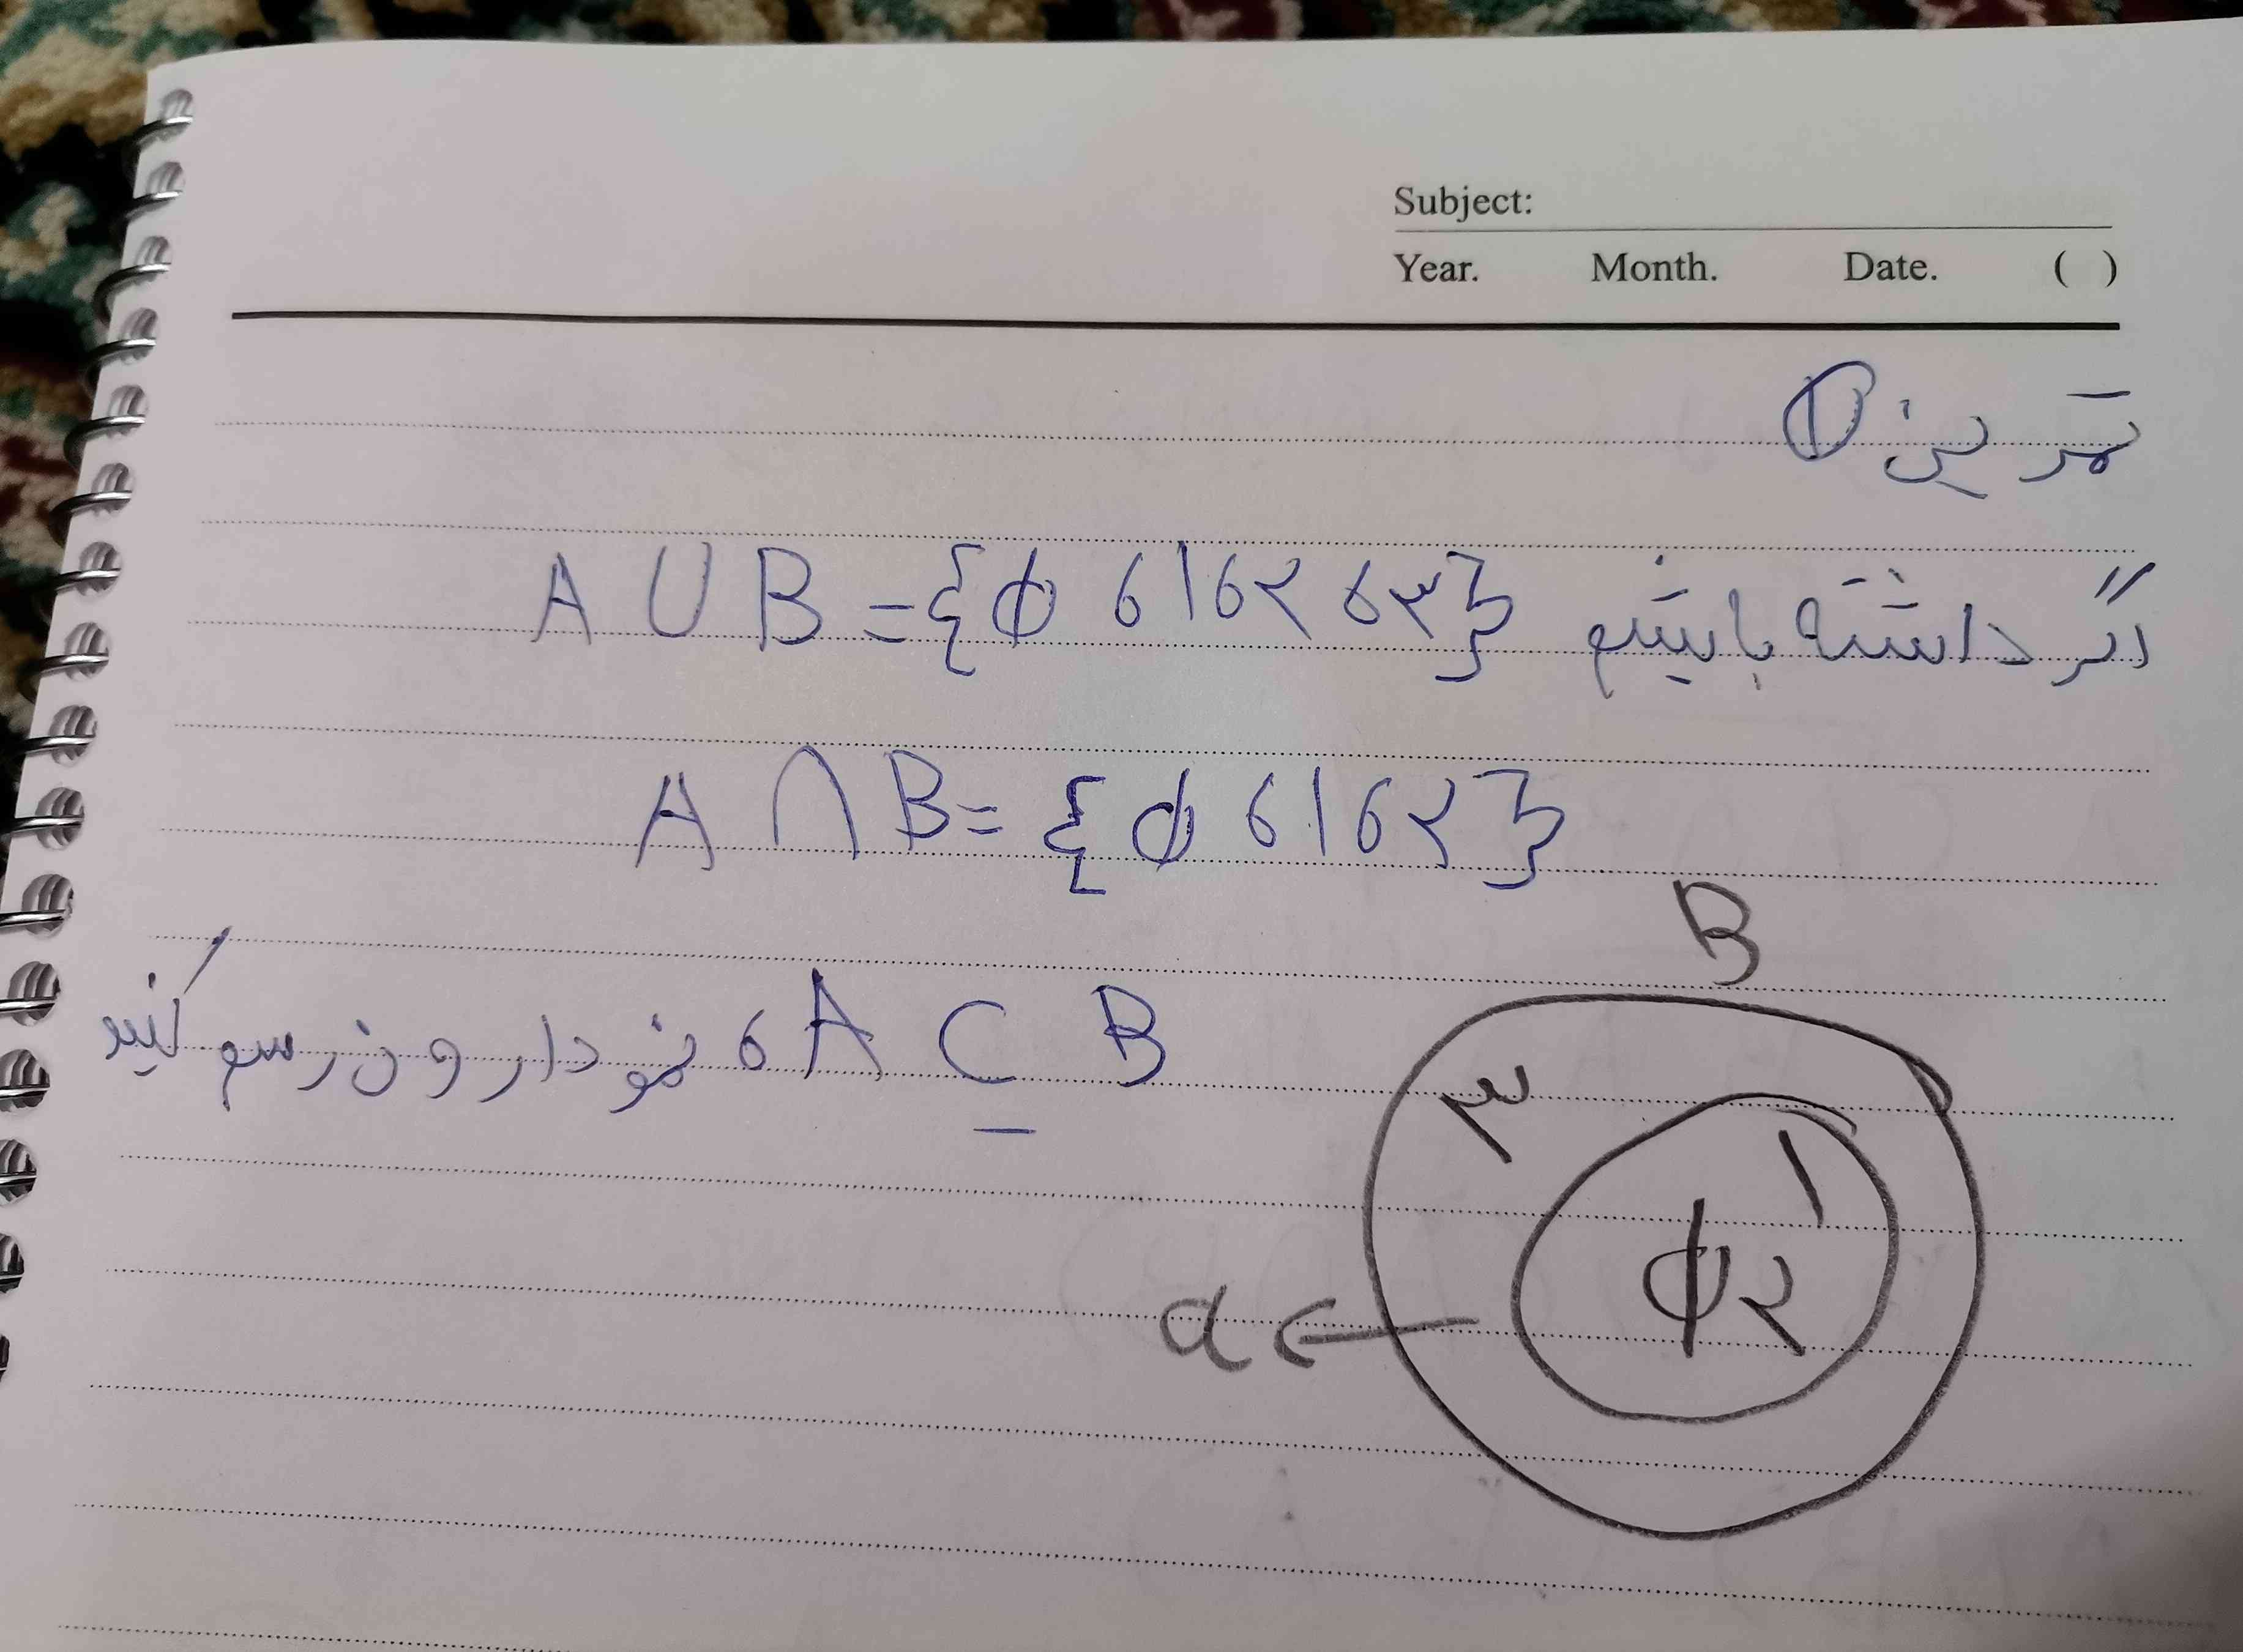 Subject:
Year. Month. Date. ( )
تمرین ①
اگر داشته باشیم A ∪ B = {φ , ۱ , ۲ , ۳}
A ∩ B = {φ , ۱ , ۲}
A ⊆ B , نمودار ون رسم کنید
B
۳
۱
φ ۲
a ←